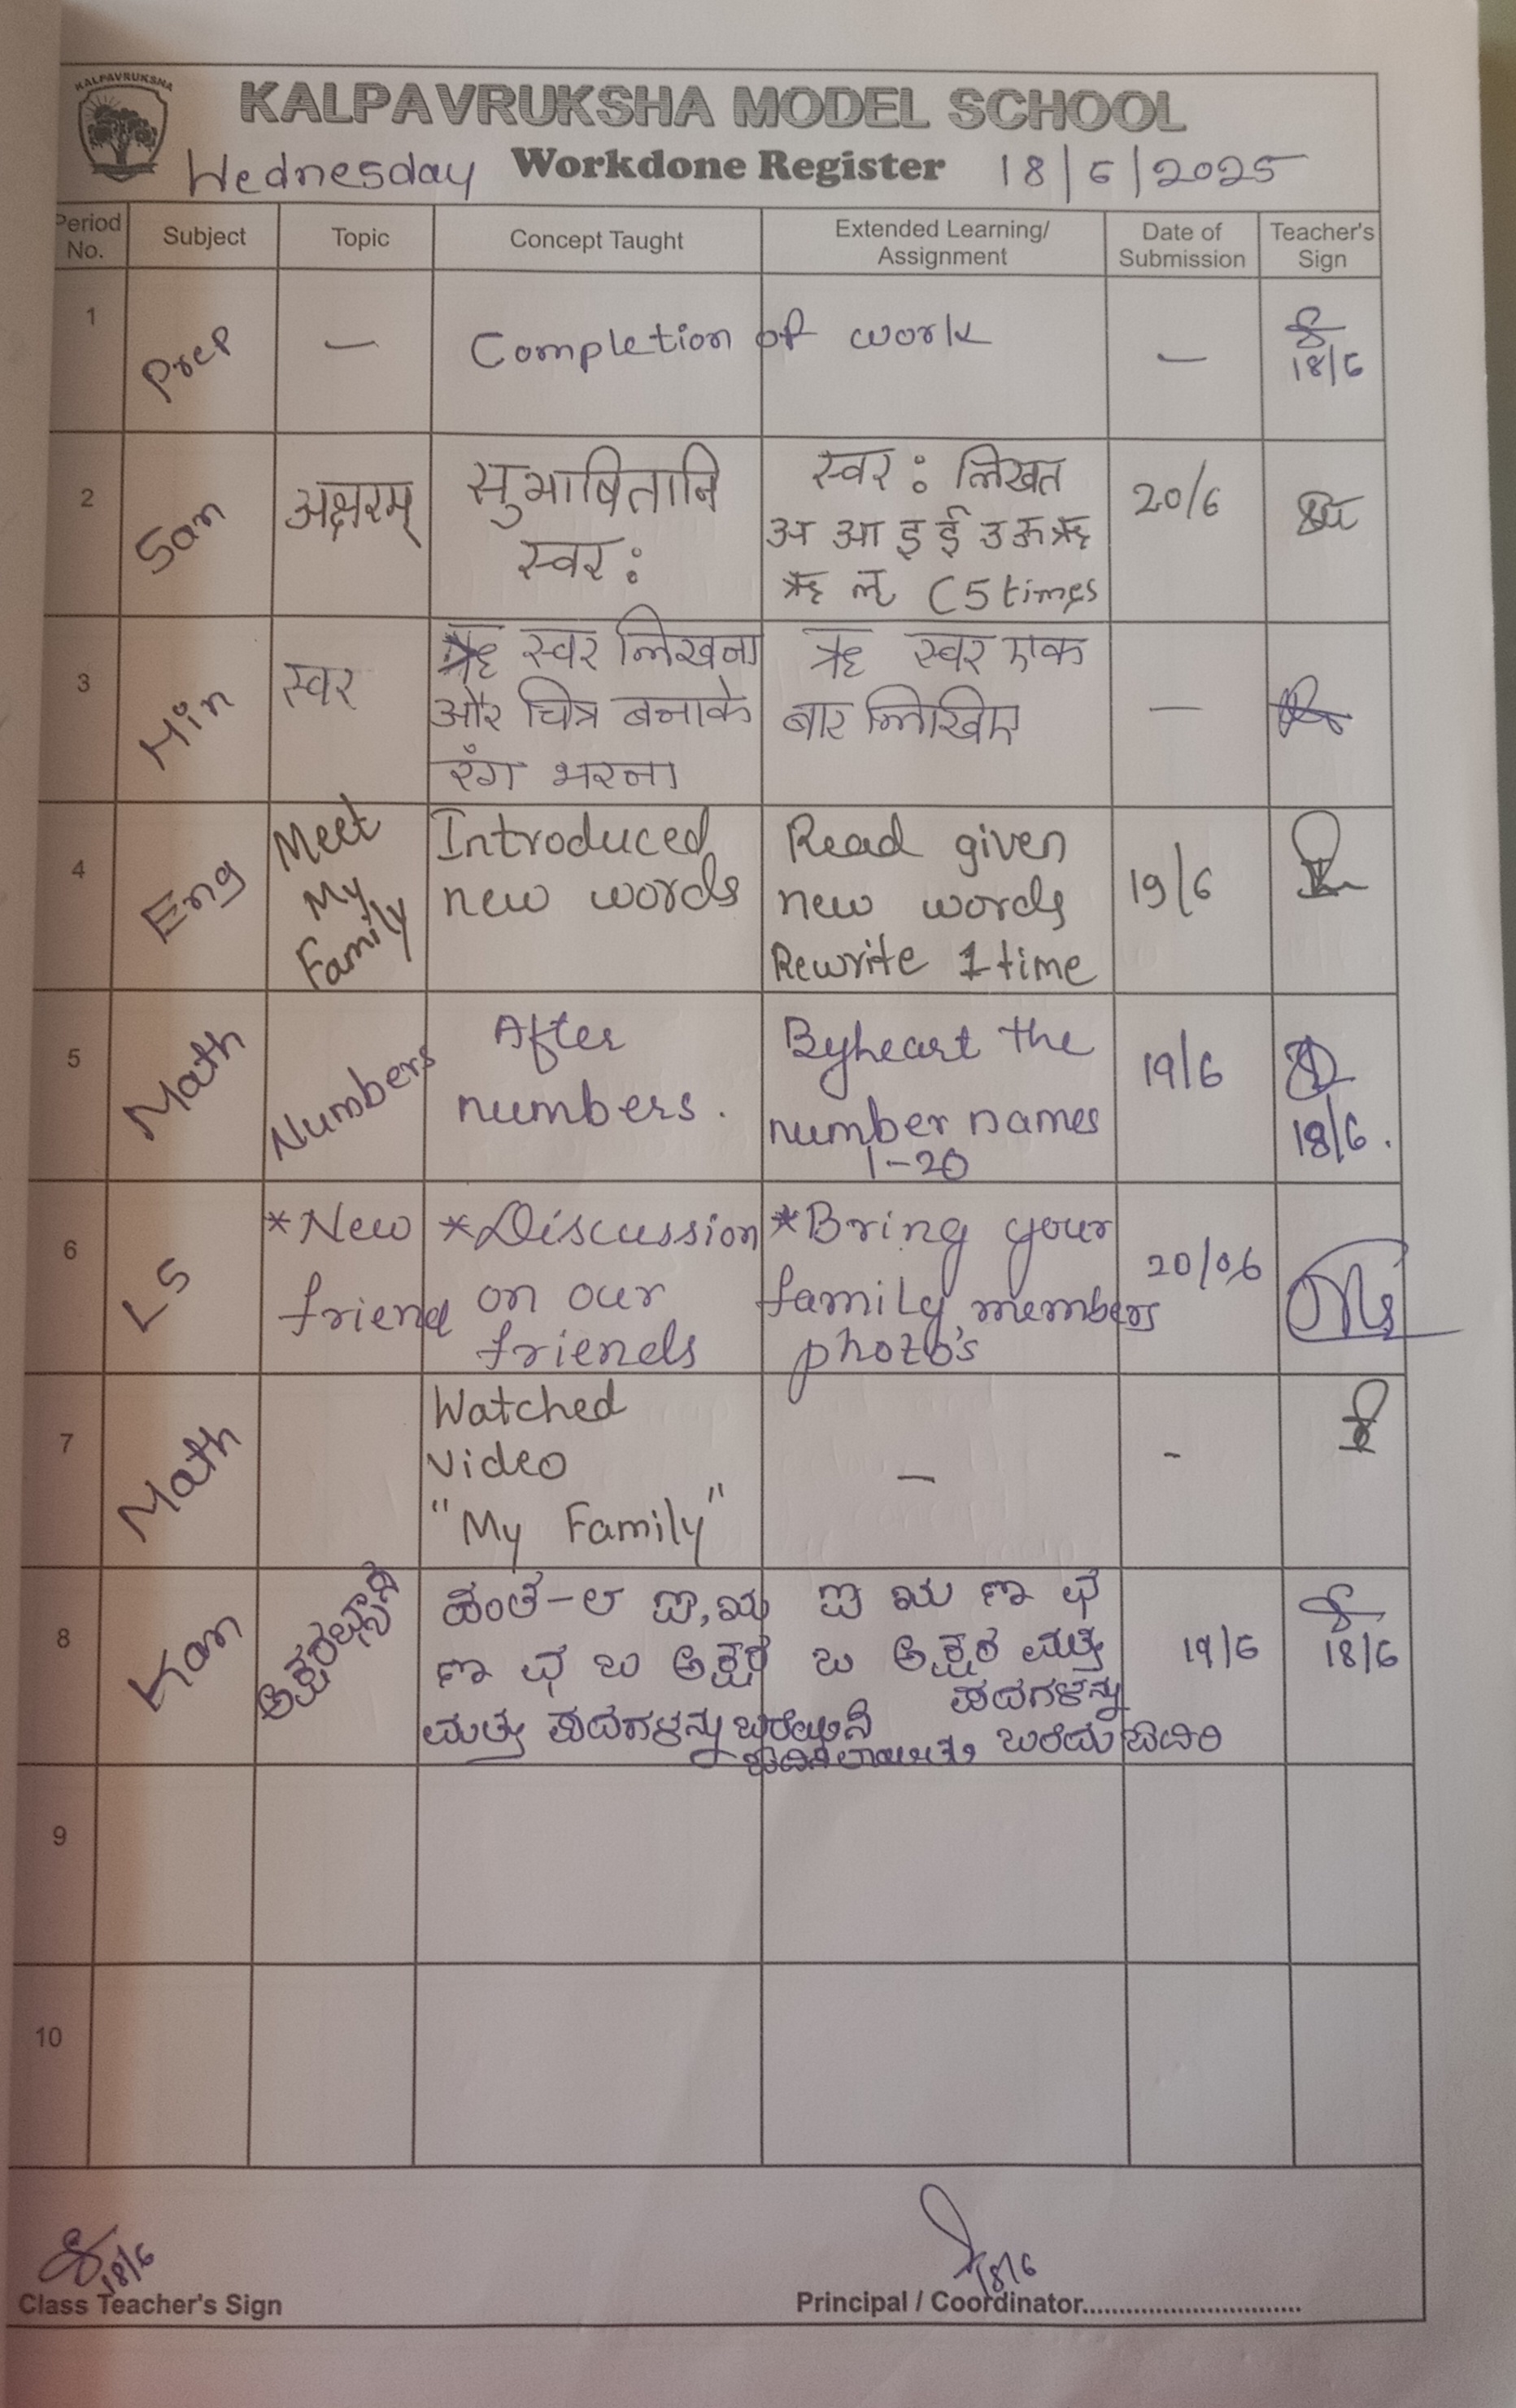 KALPAVRUKSHA
KALPAVRUKSHA MODEL SCHOOL
Wednesday Workdone Register 18/6/2025
Period No. Subject Topic Concept Taught Extended Learning/ Assignment Date of Submission Teacher's Sign
1 Prep — Completion of work — 18/6
2 San अक्षरम् सुभाषितानि स्वर: स्वर: लिखत 20/6
अ आ इ ई उ ऊ ऋ
ॠ ऌ (5 times
3 Hin स्वर ऋ स्वर लिखना ऋ स्वर एक —
और चित्र बनाके बार लिखिए
रँग भरना
4 Eng Meet My Family Introduced Read given 19/6
new words new words
Rewrite 1 time
5 Math Numbers After Byheart the 19/6
numbers. number names 18/6.
1-20
6 LS *New *Discussion *Bring your 20/06
friend on our family members
friends photo's
7 Math Watched — -
video
"My Family"
8 Kan ಅಕ್ಷರಜ್ಞಾನ ಹಂತ-೮ ಐ, ಋ ಐ ಋ ಣ ಛ 19/6 18/6
ಣ ಛ ಋ ಅಕ್ಷರ ಅಕ್ಷರ ಮತ್ತು
ಮತ್ತು ಪದಗಳನ್ನು ಪದಗಳನ್ನು
ಬರೆದು
9
10
18/6 18/6
Class Teacher's Sign Principal / Coordinator..............................